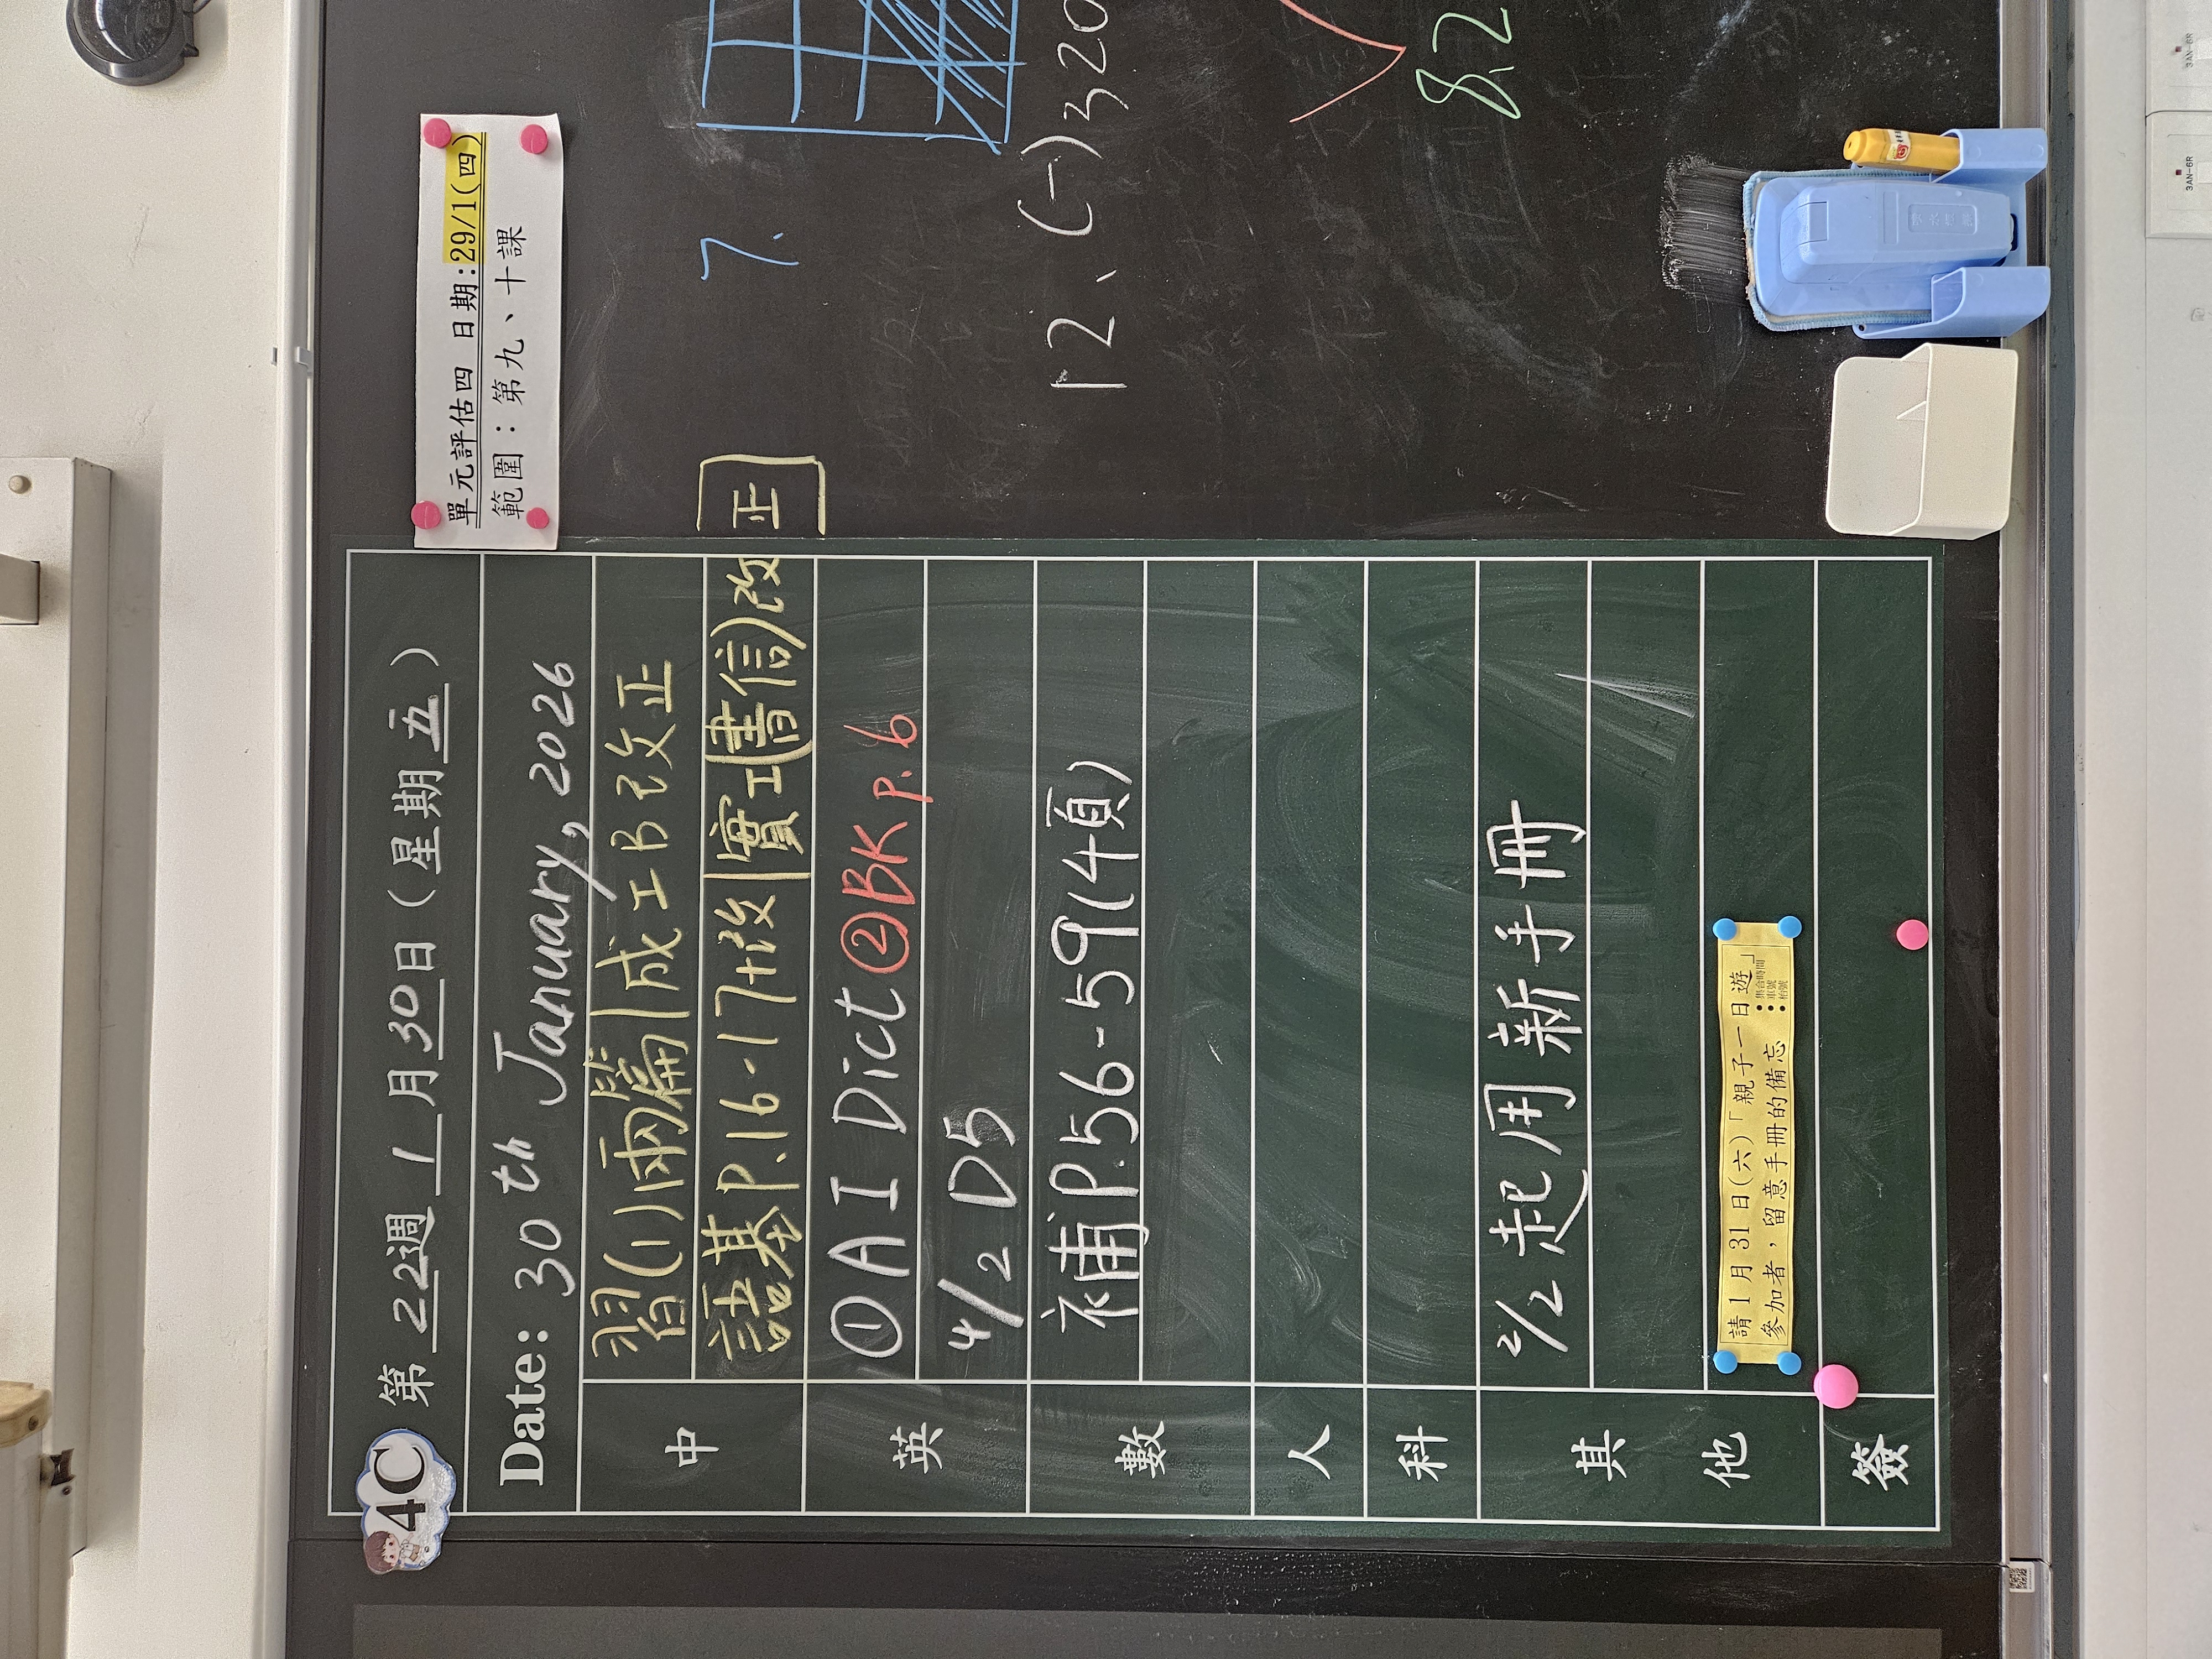 4C
第 22 週 1 月 30 日 (星期 五 )
Date: 30 th January, 2026
中
習(1)兩篇|成工B改正
語基P.16-17+改|實工(書信)改正
英
①A I Dict ②BK p.6
4/2 D5
數
補P.56-59(4頁)
人
科
其他
2/2 起用新手冊
請1月31日(六)「親子一日遊」
參加者,留意手冊的備忘
:集合時間
:車號
:枱號
簽
單元評估四 日期:29/1(四)
範圍:第九、十課
7.
12、(-)320
8.2
3AN-6R
3AN-6R